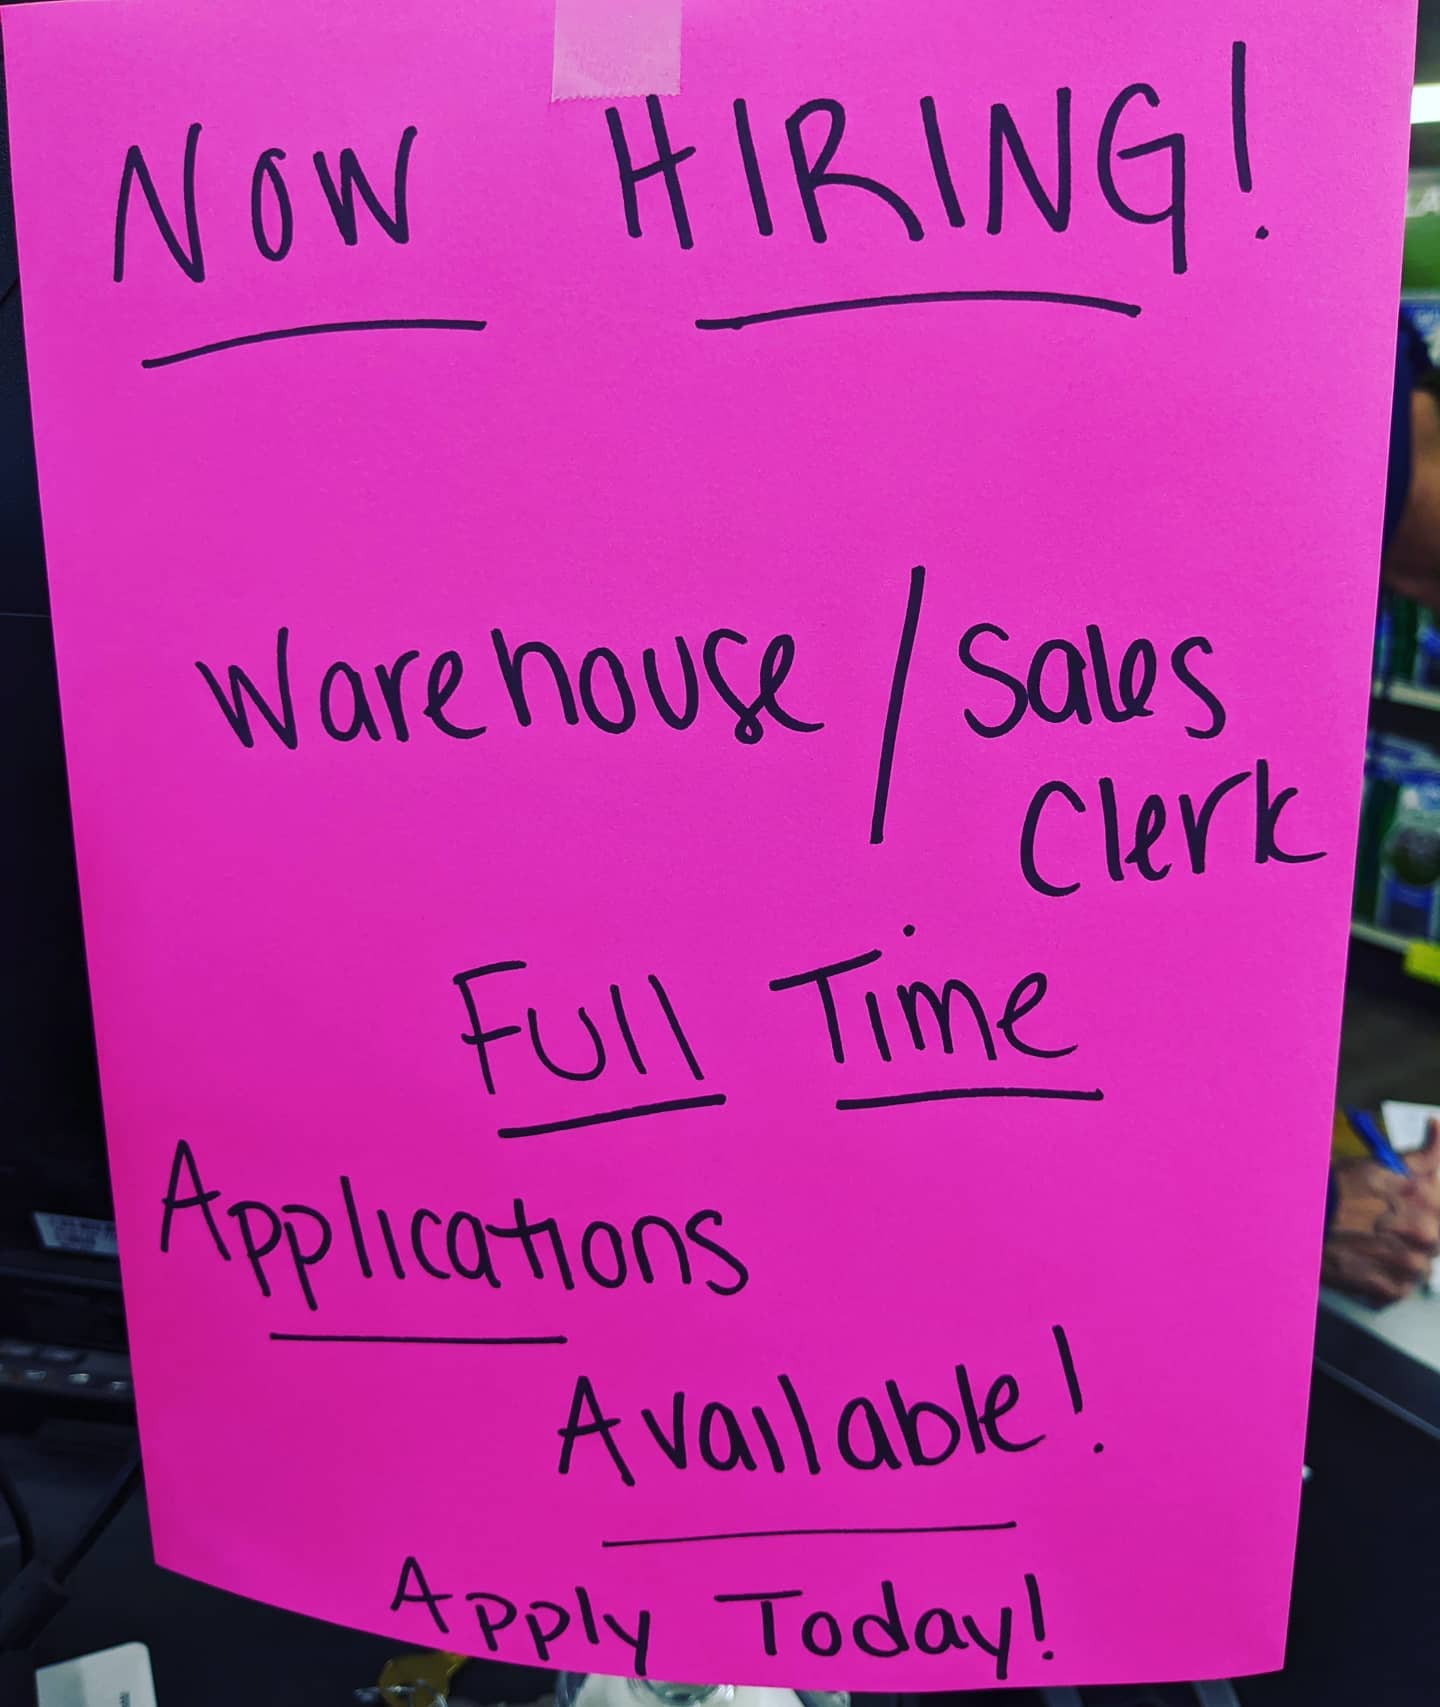 NOW HIRING!
Warehouse / Sales
Clerk
Full Time
Applications
Available!
Apply Today!